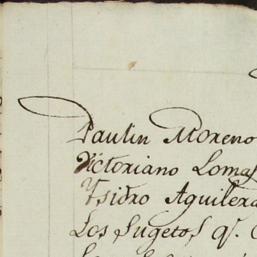 Paulin Moreno
Victoriano Lomas
Ysidro Aguilera
Los Sugetos q.